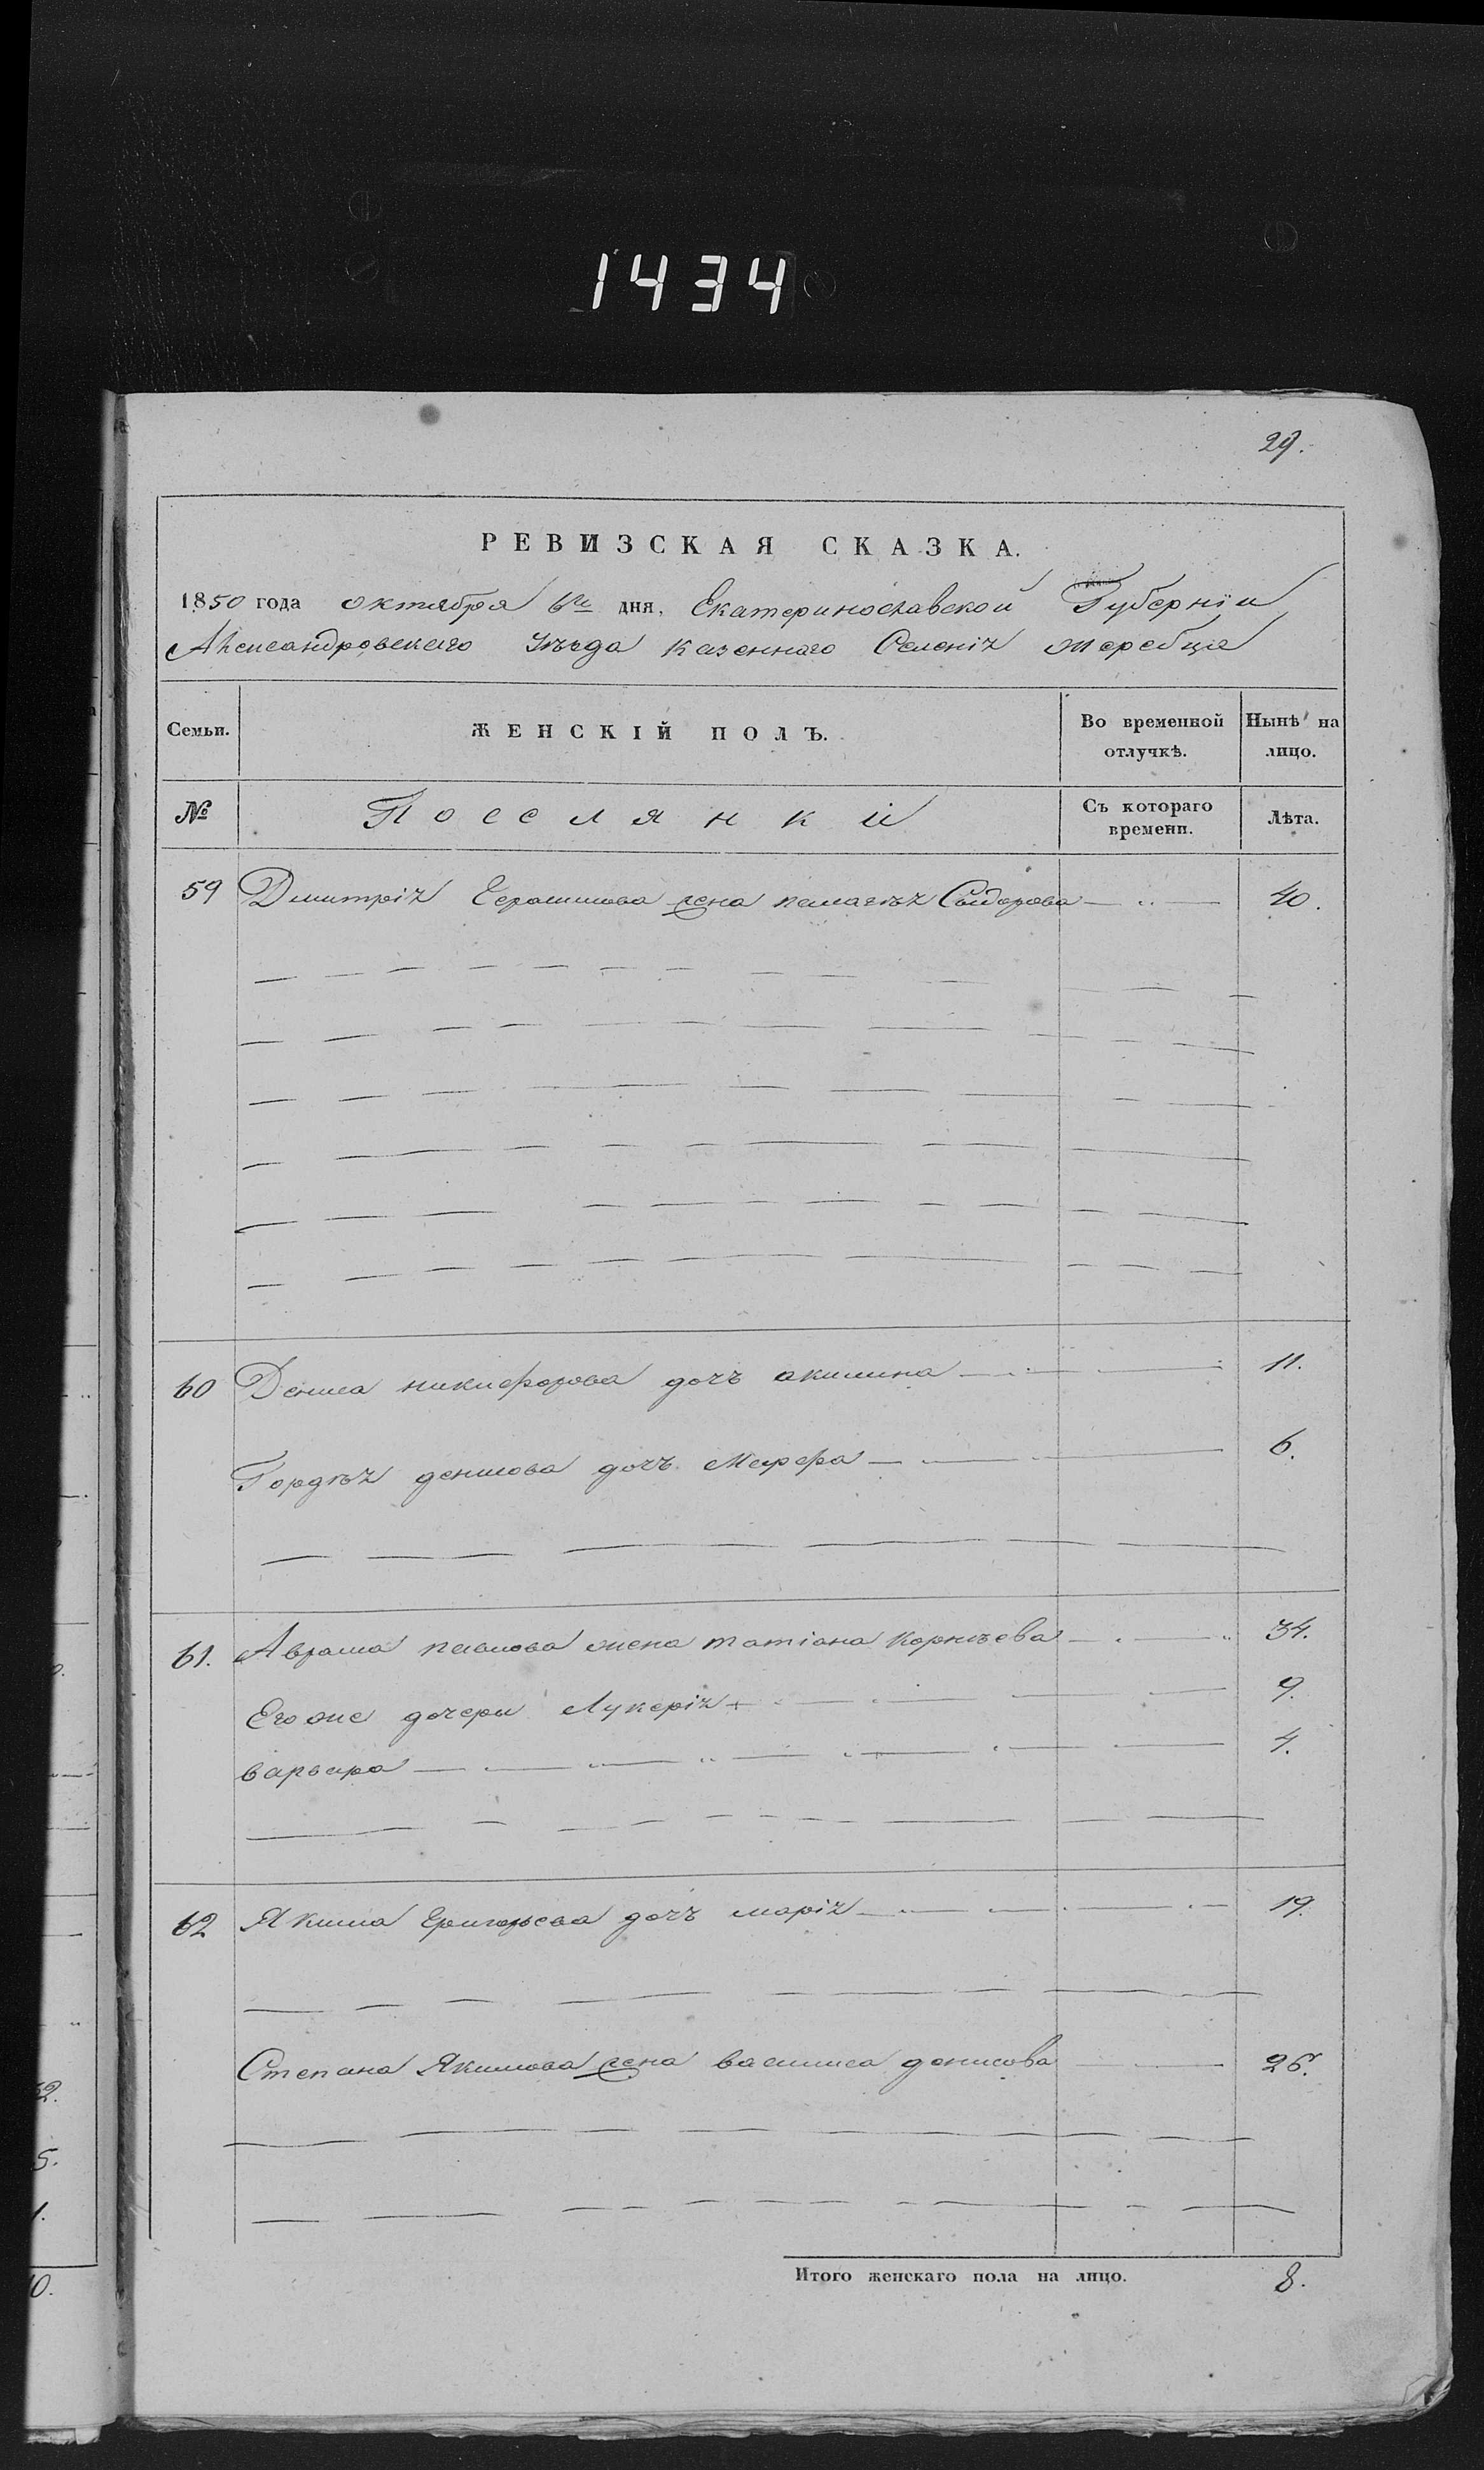 1434
29.
РЕВИЗСКАЯ СКАЗКА.
1850 года октября 6го дня, Екатеринославской Губерніи
Александровскаго уѣзда казеннаго Селенія жеребца
Семьи. ЖЕНСКІЙ ПОЛЪ. Во временной отлучкѣ. Нынѣ на лицо.
№ Посселянки Съ котораго времени. Лѣта.
59 Дмитрія Герасимова жена пелагѣя Сыдорова 40.
60 Дениса никифорова дочъ акилина 11.
Гордѣя денисова дочъ Марфа 6.
61. Аврама павлова жена татіана Корнѣева 34.
Его же дочери Лукерія 9.
варвара 4.
62 Якима Григорьева дочъ марія 19.
Степана Якимова жена василиса денисова 26.
Итого женскаго пола на лицо. 8.
2.
5.
1.
0.